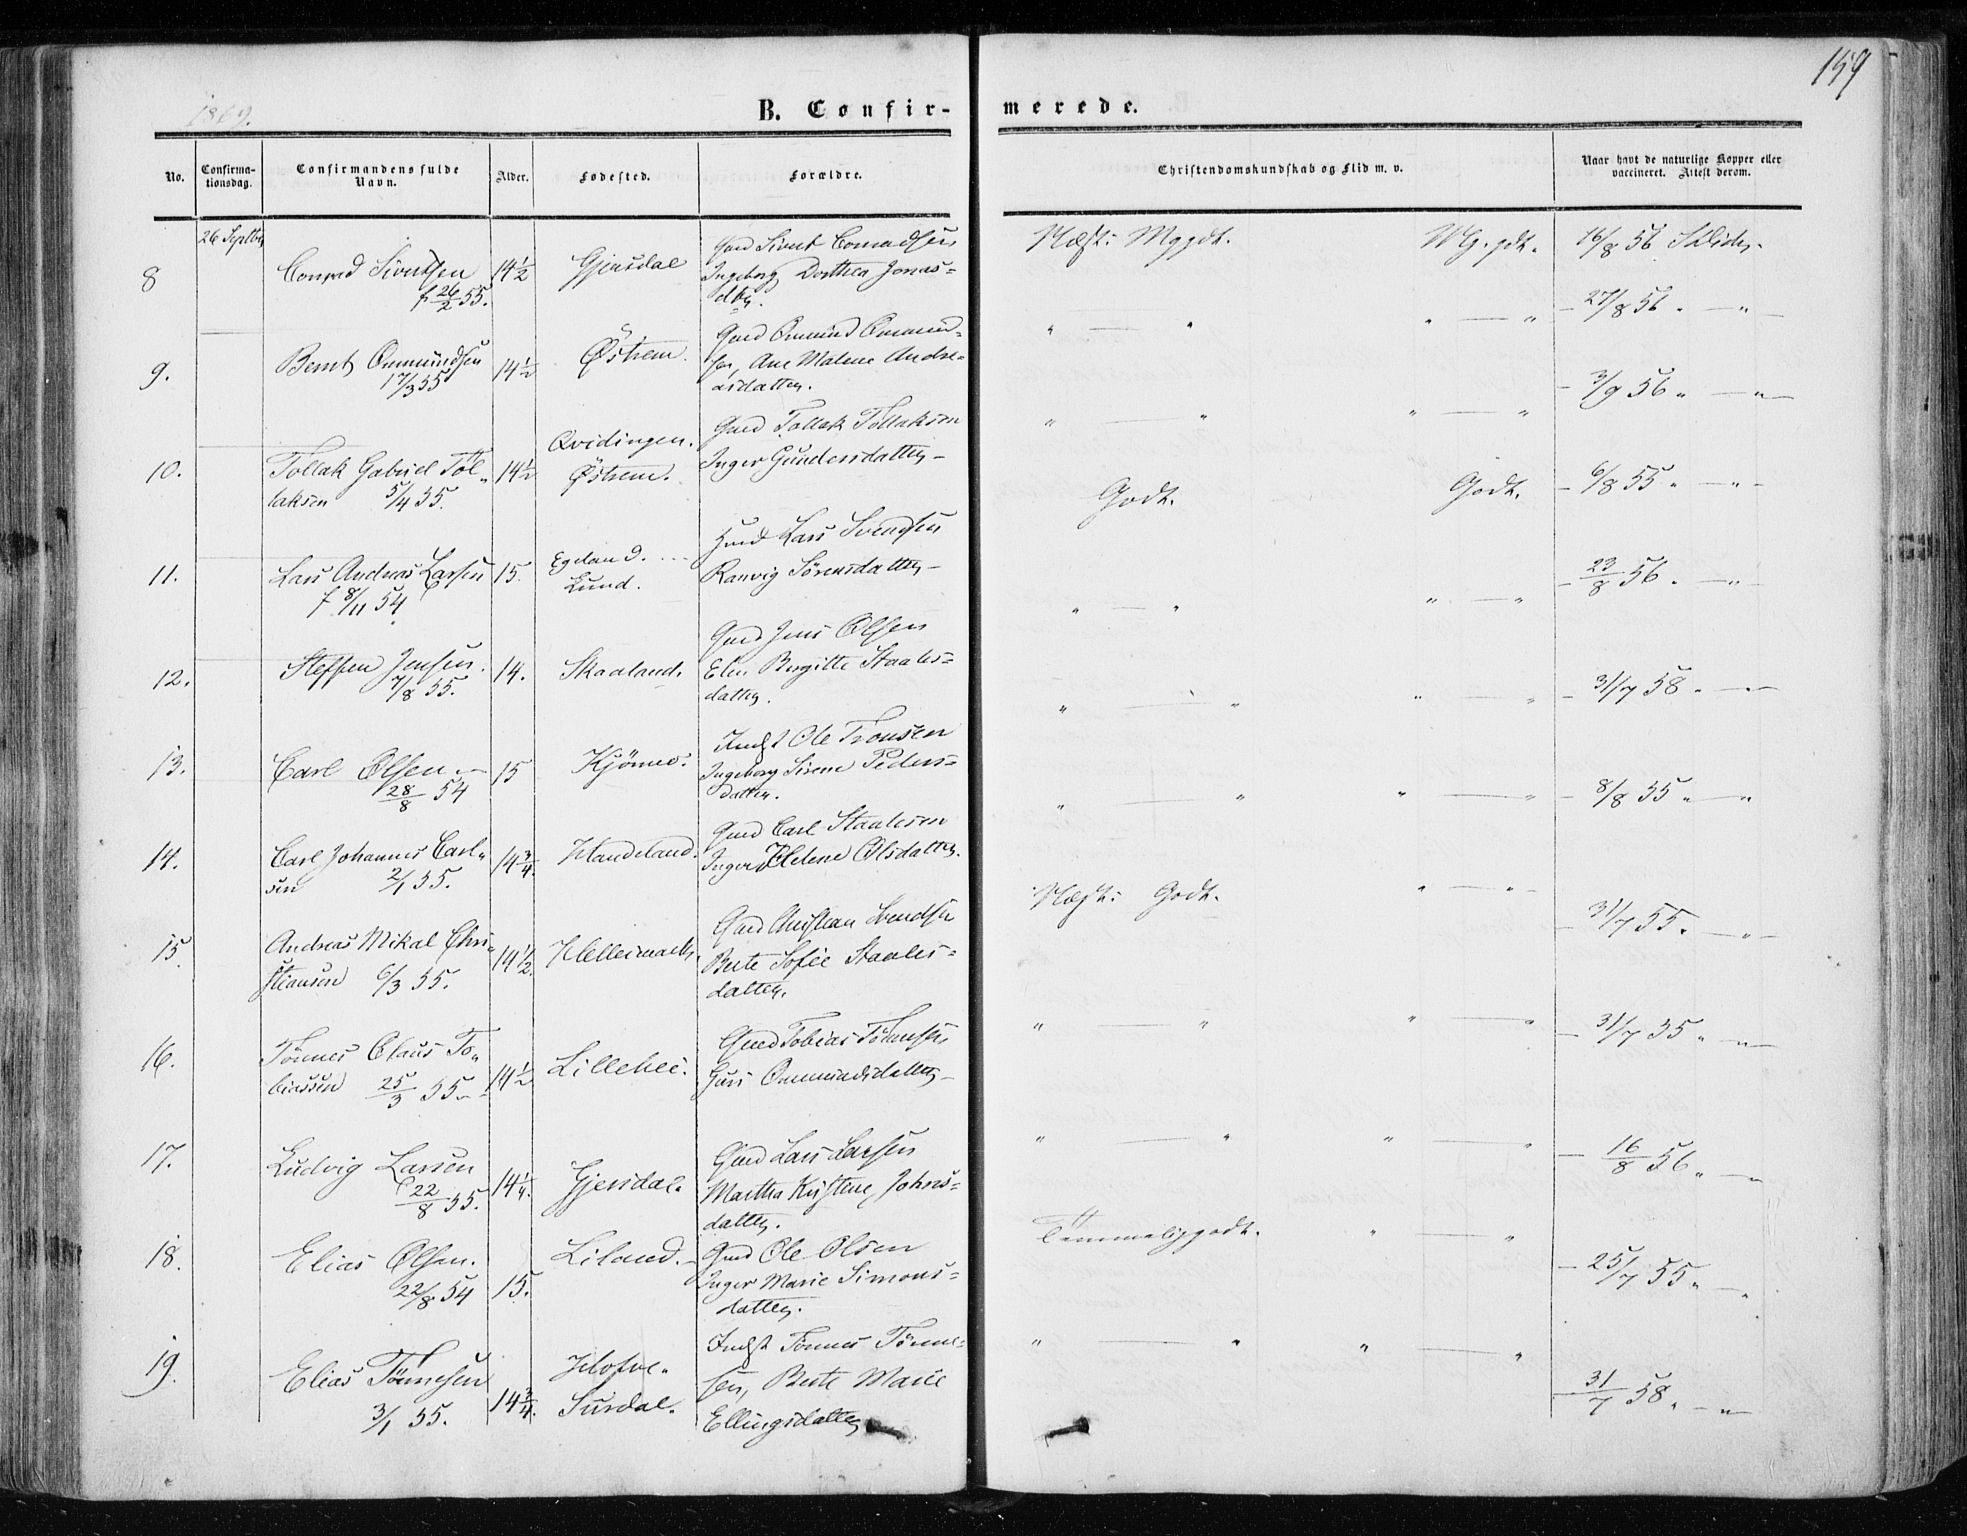 159
1869.
B. Confir- merede.
No.
Confirma-
tionsdag.
Confirmandens fulde
Navn.
Alder.
Fødested.
Forældre.
Christendomskundskab og Flid m. v.
Naar havt de naturlige Kopper eller
vaccineret. Attest derom.
26 Septbr
8
Conrad Sivertsen
f 26/2 55.
14 1/2
Gjersdal
Gmd Sivert Conradsen
Ingeborg Dorthea Jonas=
dtr.
Næst: Mggdt.
Mg. gdt.
16/8 56
9.
Bernt Ommundsen
17/3 55
14 1/2
Østrem.
Gmd Ommund Ommund-
sen, Ane Malene Andre-
asdatter.
" — "
" — "
- 27/8 56 " — " —
10.
Tollak Gabriel Tol-
laksen 5/4 55.
14 1/2
Qvidingen.
Østrem.
Gmd Tollak Tollaksen
Inger Gundersdatter —
" — "
" — "
- 3/9 56 " — " —
11.
Lars Andreas Larsen
f 8/11 54
15.
Egeland.
Lund.
Hmd Lars Svendsen
Ranvig Sørensdatter —
Godt.
Godt.
- 6/8 55 " — " —
12.
Steffen Jensen.
7/8 55.
14.
Skaaland.
Gmd Jens Olsen
Elen Birgitte Staales=
datter.
" — "
" — "
- 23/8 56 " — " —
13.
Carl Olsen —
28/8 54
15
Ole Tronsen
Ingeborg Sirene Peders=
datter.
" — "
" — "
- 31/7 58 " — " —
14.
Carl Johannes Carl-
sen 2/1 55.
14 3/4.
Handeland.
Gmd Carl Staalesen
Inger Helene Olsdatter.
" — "
" — "
- 8/8 55 " — "
15.
Andreas Mikal Chri-
stiansen 6/3 55.
14 1/2.
Gmd Christian Svendsen
Berte Sofie Staales=
datter.
Næst: Godt.
" — " -
- 31/7 55. — " —
16.
Tønnes Claus To-
biassen 25/3 55 —
14 1/2
Lillehei.
Gmd Tobias Tønnesen
Guri Ommundsdatter —
" — "
" — "
- 31/7 55 " — " —
17.
Ludvig Larsen
22/8 55.
14 1/4.
Gjersdal.
Gmd Lars Larsen
Martha Kristine Johns=
datter.
" — "
" — "
- 16/8 56 " — " —
18.
Elias Olsen.
22/8 54
15.
Liland. —
Gmd Ole Olsen
Inger Marie Simons=
datter.
Temmelig godt.
" — "
- 25/7 55 " — "
19.
Elias Tønnesen
3/1 55.
14 3/4.
Surdal.
Tønnes Tønne-
sen, Berte Marie
Ellingsdatter
" — "
" — "
- 31/7 58 " — " —